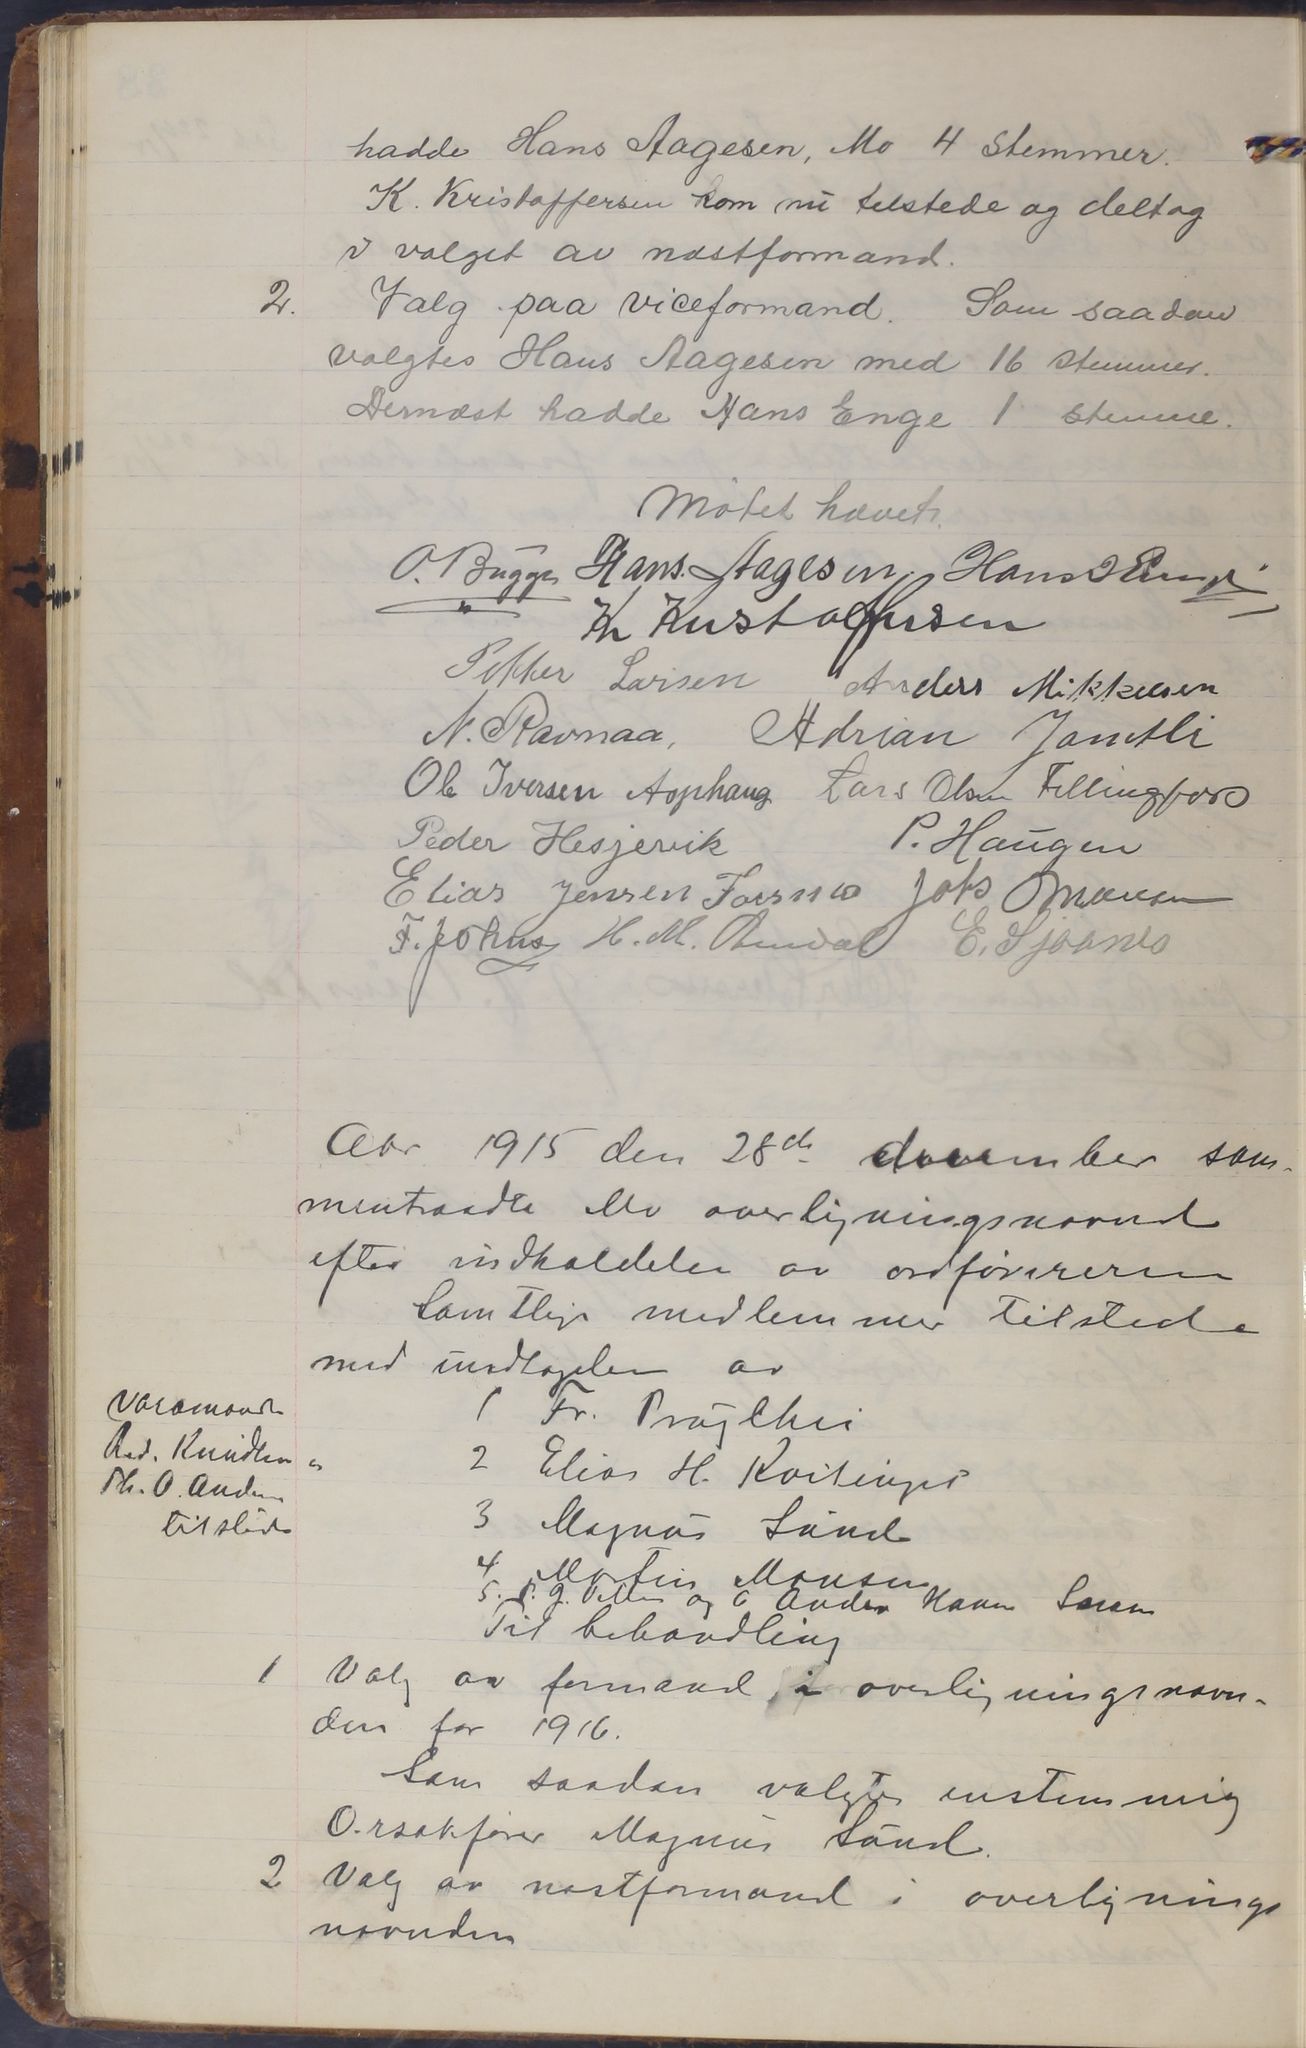 hadde Hans Aagesen, Mo 4 stemmer.
K. Kristoffersen kom nu telstede og deltog
i valget av næstformand.
2. Valg paa viceformand. Som saadan
valgtes Hans Aagesen med 16 stemmer.
Dernæst hadde Hans Enge 1 stemme.
Møtet hævet.
O. Bugge Hans Aagesen. Hans J Enge
Kr Kristoffersen
Petter Larsen Anders Mikkelsen
N. Ravnaa, Adrian Jamtli
Ole Iversen Asphaug Lars Olsen Fillingfors
Peder Hesjevik P. Haugen
Elias Jensen Forsmo Johs Monsen
F. Johns H. M. E. Sjaamo
Aar 1915 den 28de december sam-
mentraadte Mo overligningsnævnd
efter indkaldelse av ordføreren
Samtlige medlemmer tilstede
med undtagelse av
Varamænd
Rad. Knudsen og
Th. O. Anders
tilstede
1 Fr.
2 Elias H.
3 Magnus Lund
4 Martin Monsen
5. P. J. og 6 Anders Larsen
Til behandling
1 Valg av formand i overligningsnævn-
den for 1916.
Som saadan valgtes enstemmig
O.rsakfører Magnus Lund.
2 Valg av næstformand i overlignings
nævnden